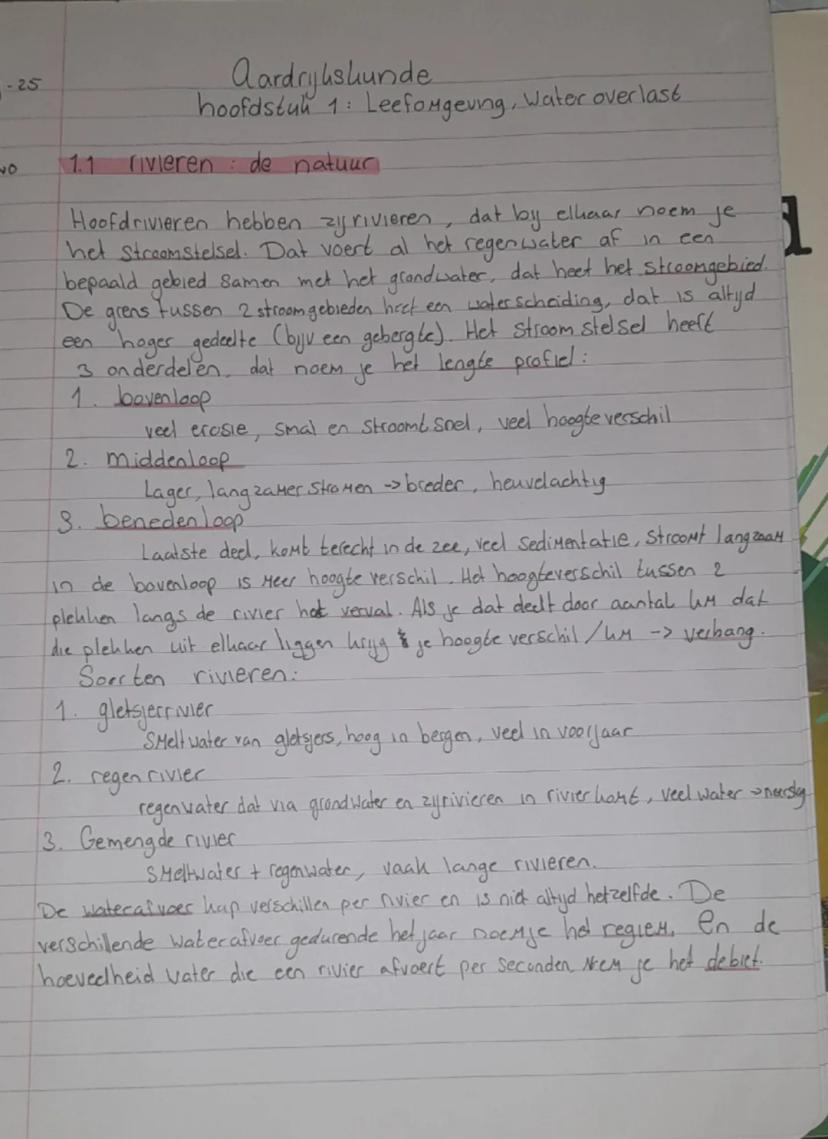 -25
Aardrijkskunde
hoofdstuk 1: Leefomgeving, Wateroverlast
vo
1.1 rivieren: de natuur
Hoofdrivieren hebben zijrivieren, dat bij elkaar noem je
het stroomstelsel. Dat voert al het regenwater af in een
bepaald gebied samen met het grondwater, dat heet het stroomgebied.
De grens tussen 2 stroomgebieden heet een waterscheiding, dat is altijd
een hoger gedeelte (bijv een gebergte). Het stroomstelsel heeft
3 onderdelen, dat noem je het lengte profiel:
1. bovenloop
veel erosie, smal en stroomt snel, veel hoogteverschil
2. middenloop
Lager, langzamer stromen -> breder, heuvelachtig
3. benedenloop
Laatste deel, komt terecht in de zee, veel sedimentatie, stroomt langzaam
in de bovenloop is meer hoogteverschil. Het hoogteverschil tussen 2
plekken langs de rivier het verval. Als je dat deelt door aantal km dat
die plekken uit elkaar liggen krijg je hoogteverschil/km -> verhang.
Soorten rivieren:
1. gletsjerrivier
Smeltwater van gletsjers, hoog in bergen, veel in voorjaar
2. regenrivier
regenwater dat via grondwater en zijrivieren in rivier komt, veel water -> neerslag
3. Gemengde rivier
Smeltwater + regenwater, vaak lange rivieren.
De waterafvoer kap verschillen per rivier en is niet altijd hetzelfde. De
verschillende waterafvoer gedurende het jaar noem je het regiem. En de
hoeveelheid water die een rivier afvoert per seconden noem je het debiet.
d